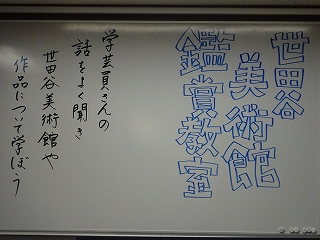 世田谷
美術館
鑑賞教室
学芸員さんの
話をよく聞き
世田谷美術館や
作品について学ぼう